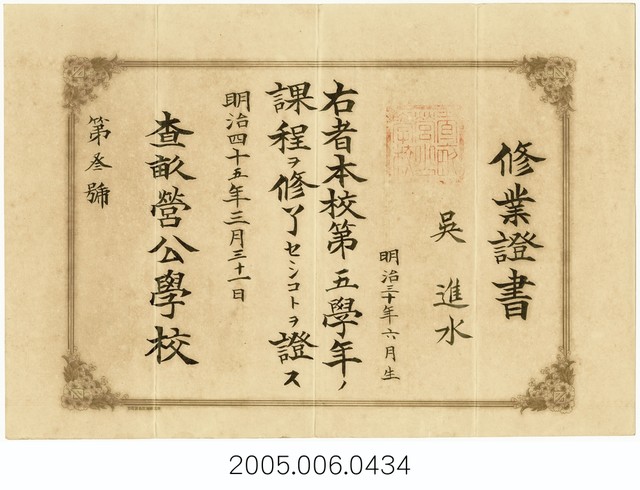 修業證書
吳進水
明治三十年六月生
右者本校第五學年ノ
課程ヲ修了セシコトヲ證ス
明治四十五年三月三十一日
查畝營公學校
第叁號
2005.006.0434